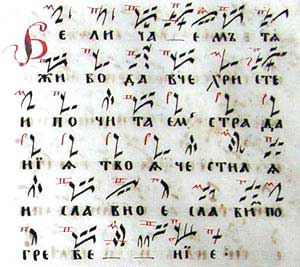 Вели ча _ емъ тѧ
жи во да вче хри сте
и по чи та ем стра да
нїѧ тво ѧ че стна ѧ
и сла вно е сла ви по
гре бе _ _ нїе